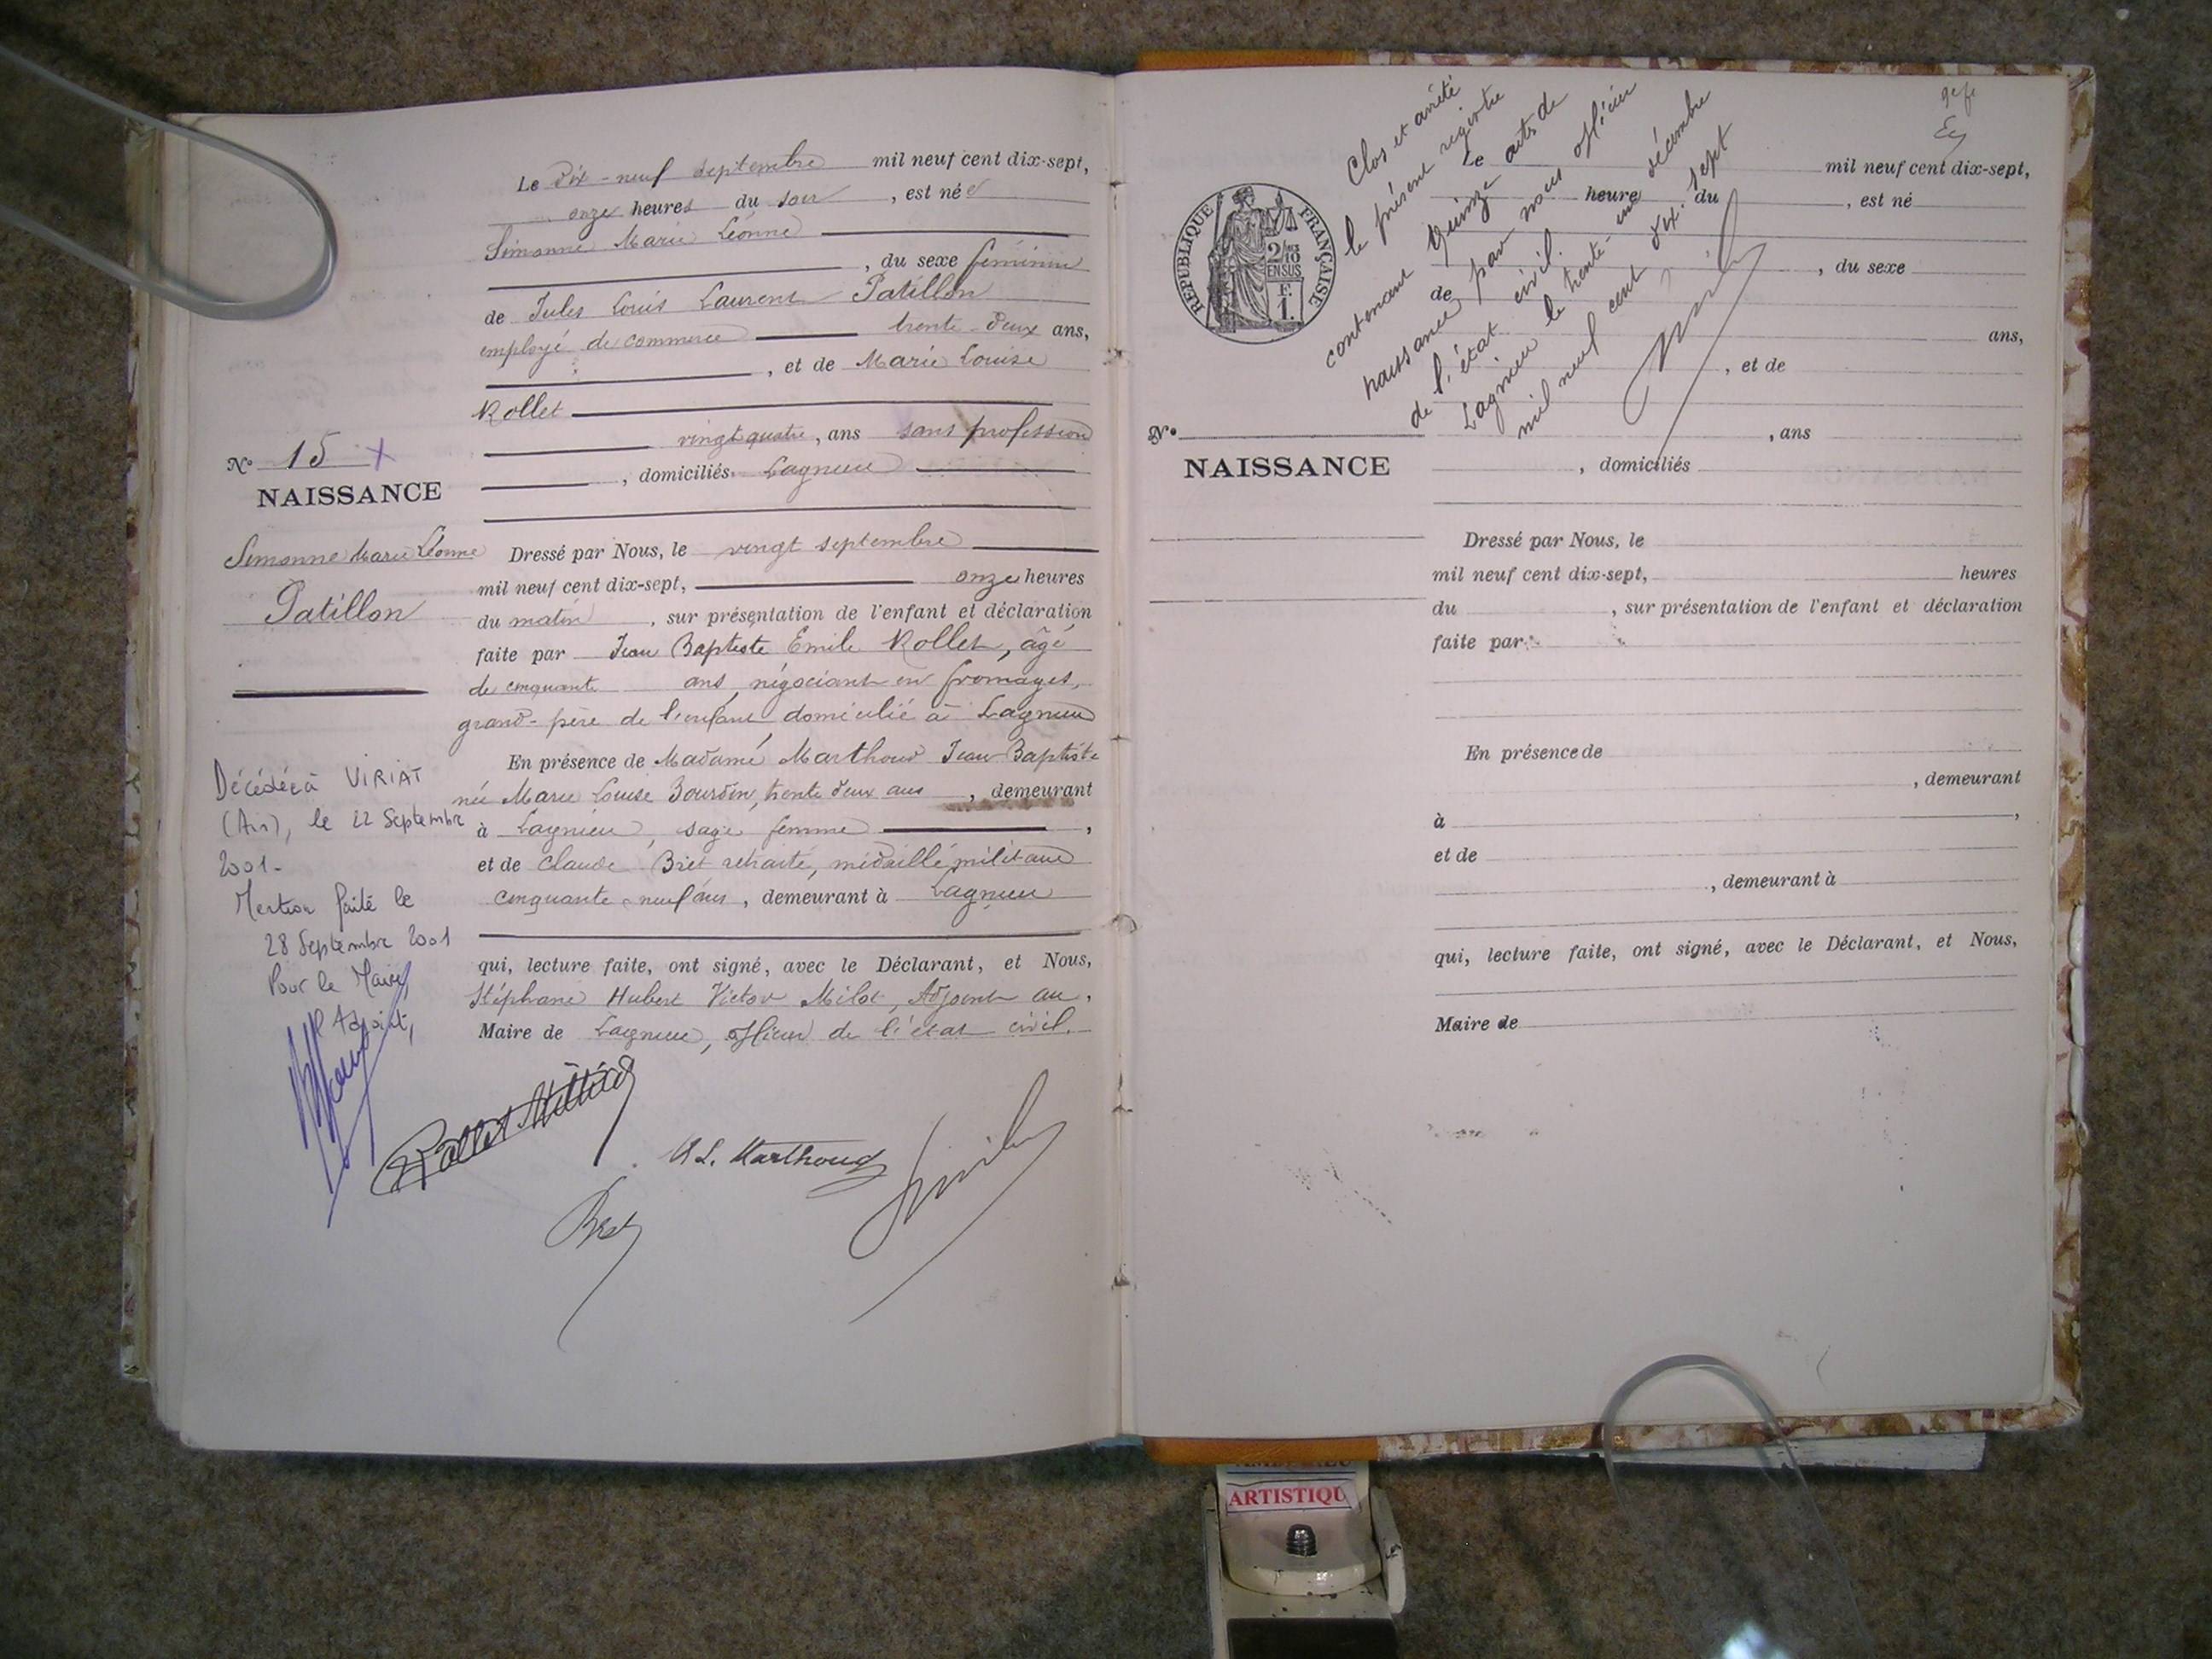 Le Dix-neuf septembre mil neuf cent dix-sept,
onze heures du soir, est née
Simonne Marie Léonne
, du sexe féminin
de Jules Louis Laurent Patillon
employé de commerce trente-deux ans,
, et de Marie Louise
Rollet
vingt quatre, ans sans profession
, domiciliés Lagnieu
N° 15 X
NAISSANCE
Simonne Marie Léonne
Patillon
Dressé par Nous, le vingt septembre
mil neuf cent dix-sept, onze heures
du matin, sur présentation de l'enfant et déclaration
faite par Jean Baptiste Emile Rollet, âgé
de cinquante ans, négociant en fromages,
grand-père de l'enfant domicilié à Lagnieu
En présence de Madame Marthoud Jean Baptiste
née Marie Louise Bourdin, trente deux ans, demeurant
à Lagnieu, sage femme,
et de Claude Bret retraité, médaillé militaire
cinquante-neuf ans, demeurant à Lagnieu
qui, lecture faite, ont signé, avec le Déclarant, et Nous,
Stéphane Hubert Victor Milot, Adjoint au
Maire de Lagnieu, officier de l'état civil.
Décédée à VIRIAT
(Ain), le 22 Septembre
2001-
Mention faite le
28 Septembre 2001
Pour le Maire,
l'Adjoint,
Rollet
M L. Marthoud
Bret
Clos et arrêté
le présent registre
contenant quinze actes de
naissance par nous officier
de l'état civil.
Lagnieu le trente-un décembre
mil neuf cent dix-sept
REPUBLIQUE FRANÇAISE
2/10
EN SUS
F.
1.
Le mil neuf cent dix-sept,
heure du , est né
, du sexe
de
ans,
, et de
, ans
, domiciliés
N°
NAISSANCE
Dressé par Nous, le
mil neuf cent dix-sept, heures
du , sur présentation de l'enfant et déclaration
faite par
En présence de
, demeurant
à ,
et de
, demeurant à
qui, lecture faite, ont signé, avec le Déclarant, et Nous,
Maire de
ARTISTIQU